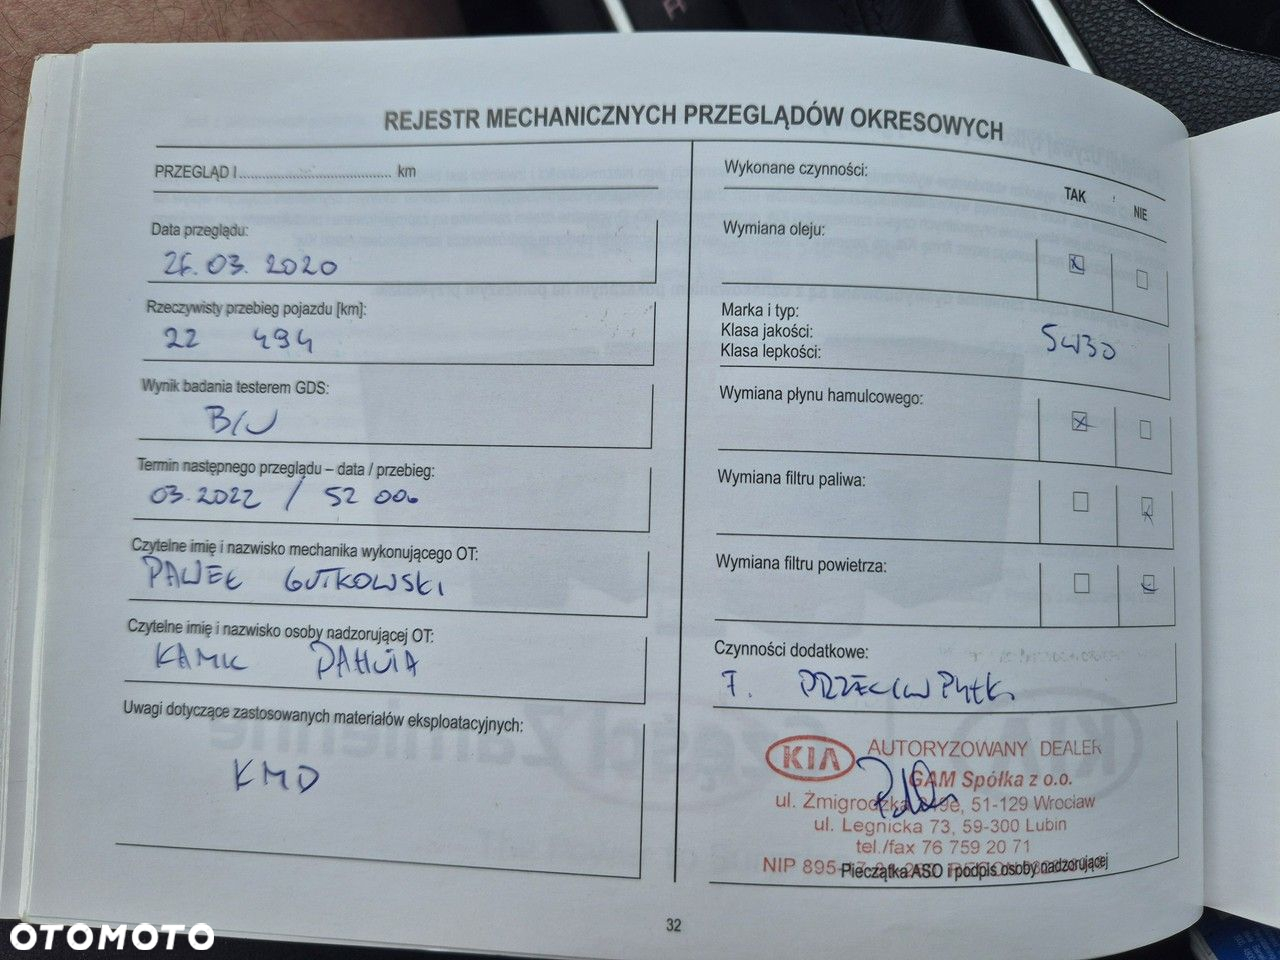 REJESTR MECHANICZNYCH PRZEGLĄDÓW OKRESOWYCH
PRZEGLĄD I.............................................. km
Data przeglądu:
26.03.2020
Rzeczywisty przebieg pojazdu [km]:
22 494
Wynik badania testerem GDS:
B/U
Termin następnego przeglądu – data / przebieg:
03.2022 / 52 000
Czytelne imię i nazwisko mechanika wykonującego OT:
PAWEŁ GUTKOWSKI
Czytelne imię i nazwisko osoby nadzorującej OT:
KAMIL
Uwagi dotyczące zastosowanych materiałów eksploatacyjnych:
KMD
Wykonane czynności:
TAK NIE
Wymiana oleju:
Marka i typ:
Klasa jakości:
Klasa lepkości:
5W30
Wymiana płynu hamulcowego:
Wymiana filtru paliwa:
Wymiana filtru powietrza:
Czynności dodatkowe:
F. PRZECIWPYŁK.
KIA AUTORYZOWANY DEALER
GAM Spółka z o.o.
ul. Żmigrodzka 249e, 51-129 Wrocław
ul. Legnicka 73, 59-300 Lubin
tel./fax 76 759 20 71
NIP 895
Pieczątka ASO i podpis osoby nadzorującej
32
OTOMOTO